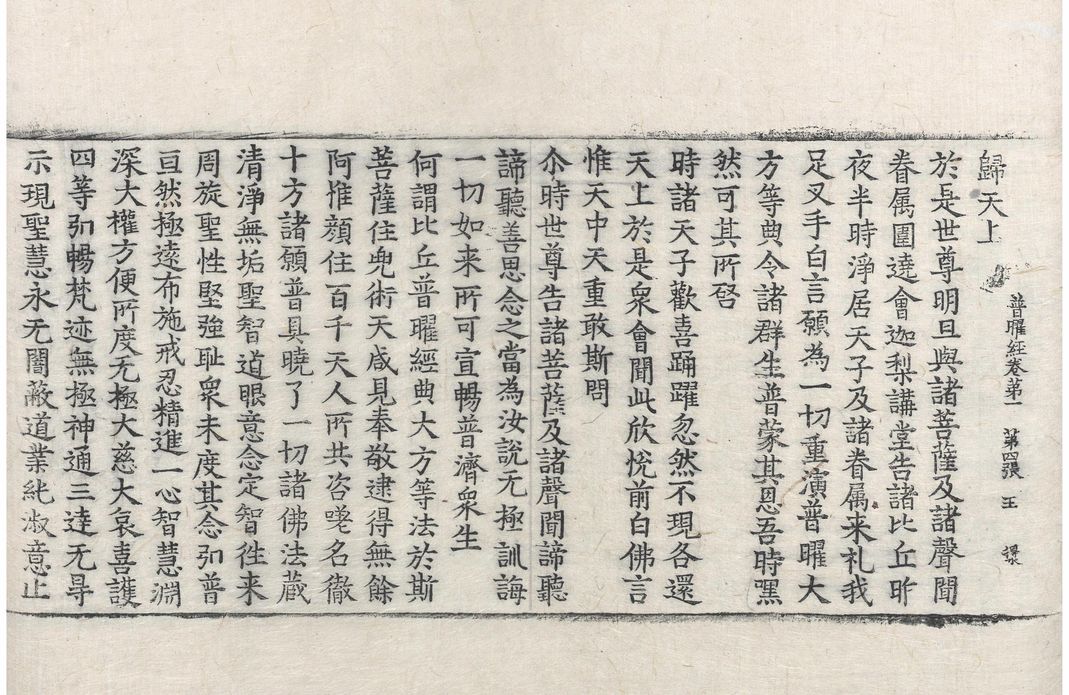 普曜經卷第一 第四張 王
歸天上
於是世尊明旦與諸菩薩及諸聲聞
眷属圍遶會迦梨講堂告諸比丘昨
夜半時淨居天子及諸眷属来礼我
足叉手白言願為一切重演普曜大
方等典令諸群生普蒙其恩吾時嘿
然可其所啓
時諸天子歡喜踊躍忽然不現各還
天上於是衆會聞此欣悅前白佛言
惟天中天重敢斯問
尒時世尊告諸菩薩及諸聲聞諦聽
諦聽善思念之當為汝說无極訓誨
一切如来所可宣暢普濟衆生
何謂比丘普曜經典大方等法於斯
菩薩住兜術天咸見奉敬逮得無餘
阿惟顔住百千天人所共咨嗟名徹
十方諸願普具曉了一切諸佛法蔵
清淨無垢聖智道眼意念定智徃来
周旋聖性堅強耻衆未度其念弘普
亘然極遠布施戒忍精進一心智慧淵
深大權方便所度无極大慈大哀喜護
四等弘暢梵迹無極神通三達无㝵
示現聖慧永无闇蔽道業純淑意止